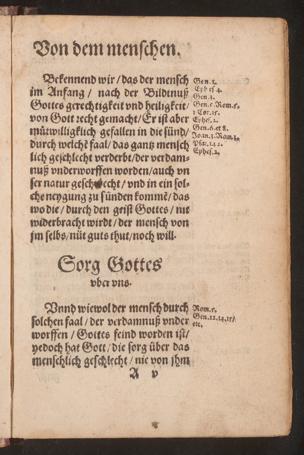 Von dem menschen.
Bekennend wir / das der mensch
im Anfang / nach der Bildtnuß
Gottes gerechtigkeit vnd heiligkeit /
von Gott recht gemacht / Er ist aber
mütwilligklich gefallen in die sünd /
durch welche faal / das gantz mensch
lich geschlecht verderbt / der verdam-
nuß vnderworffen worden / auch vn
ser natur geschwecht / vnd in ein sol-
che neygung zu sünden kommē / das
wo die / durch den geist Gottes / nit
widerbracht wirdt / der mensch von
jm selbs / nüt guts thut / noch will.
Gen.1.
Eph
Gen.1.
Gen.
Rom.5.
1 Cor.15.
Ephes.2.
Gen.6. et 8.
Joan.3. Rom.3.
Psa.
Ephes.2.
Sorg Gottes
vber vns.
Vnnd wiewol der mensch durch
solchen faal / der verdamnuß vnder
worffen / Gottes feind worden ist /
yedoch hat Gott / die sorg über das
menschlich geschlecht / nie von jhm
Rom.5.
Gen.12.14.15/
etc.
A v